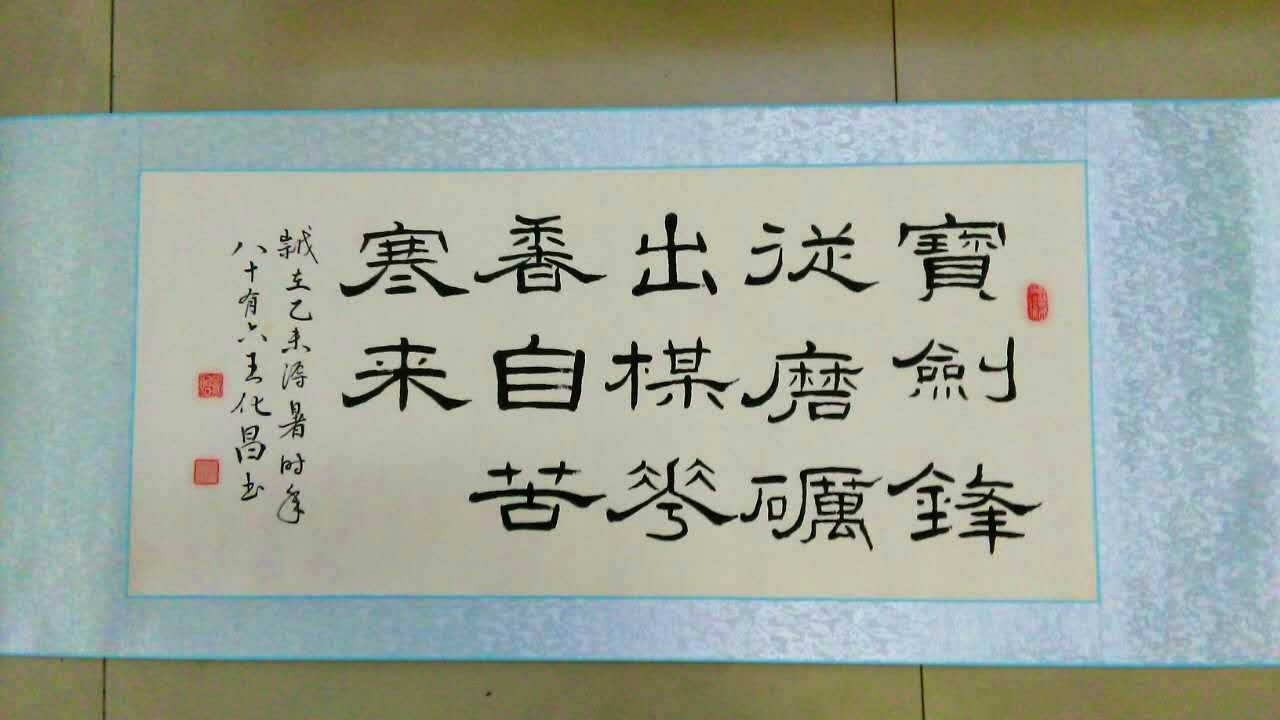 寶劍鋒
從磨礪
出楳花
香自苦
寒来
歲在乙未溽暑时年
八十有六王化昌书